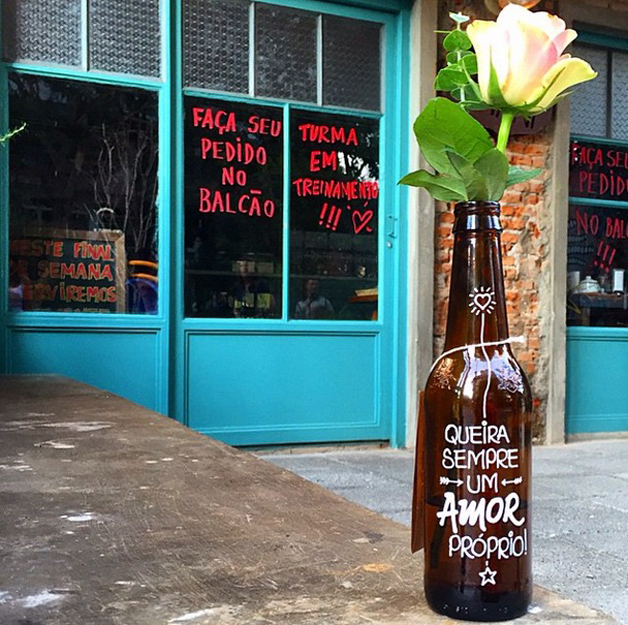 FAÇA SEU
PEDIDO
NO
BALCÃO
TURMA
EM
TREINAMENTO
!!! ♡
NESTE FINAL
DE SEMANA
SERVIREMOS
FAÇA SEU
PEDIDO
NO BALC
!!!
QUEIRA
SEMPRE
UM
AMOR
PRÓPRIO!